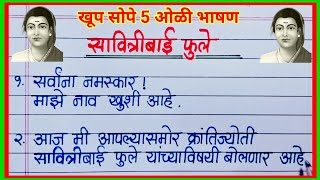 खूप सोपे 5 ओळी भाषण
सावित्रीबाई फुले
१. सर्वांना नमस्कार !
माझे नाव खुशी आहे.
२. आज मी आपल्यासमोर क्रांतिज्योती
सावित्रीबाई फुले यांच्याविषयी बोलणार आहे.